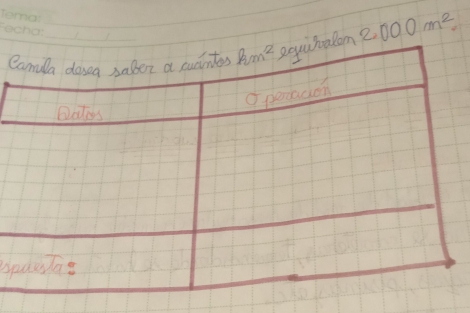 Tema:
Fecha:
Camila desea saber a cuántos km² equivalen 2.000 m².
Datos
Operación
spuesta: